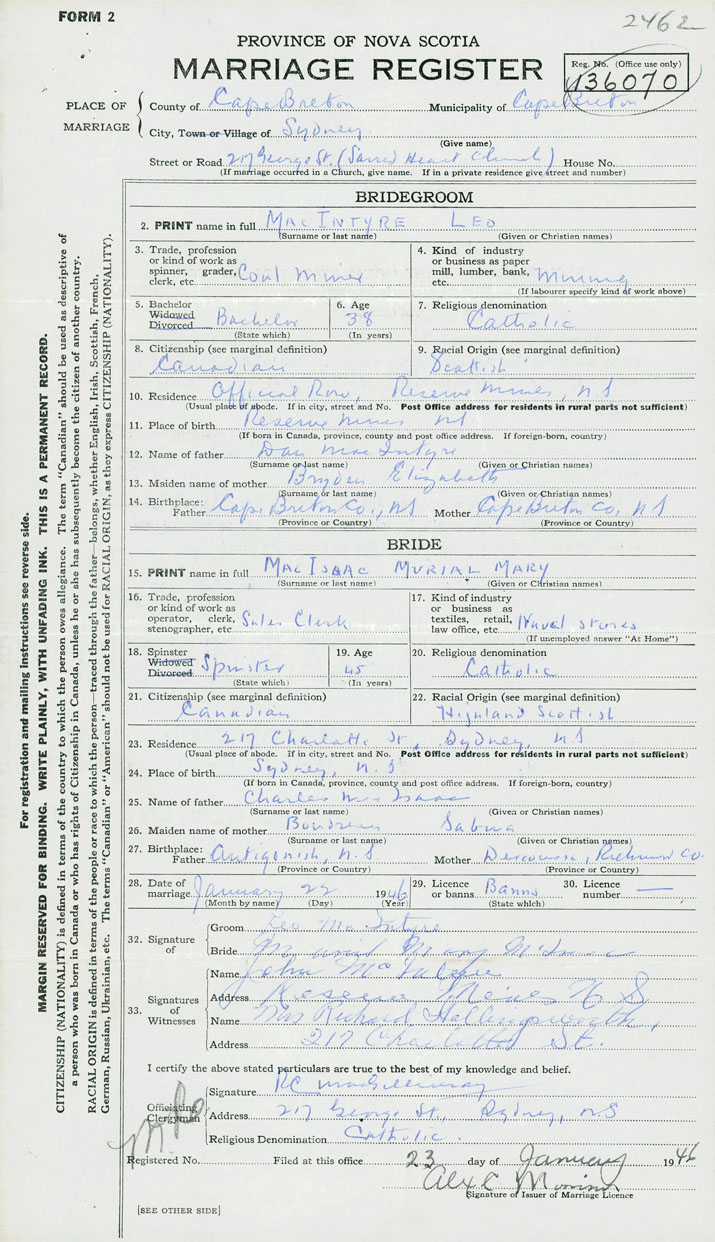 FORM 2
2462
PROVINCE OF NOVA SCOTIA
MARRIAGE REGISTER
Reg. No. (Office use only)
136070
PLACE OF MARRIAGE
County of Cape Breton Municipality of Cape Breton
City, Town or Village of Sydney
(Give name)
Street or Road 217 George St. (Sacred Heart Church) House No.
(If marriage occurred in a Church, give name. If in a private residence give street and number)
BRIDEGROOM
2. PRINT name in full MACINTYRE LEO
(Surname or last name) (Given or Christian names)
3. Trade, profession
or kind of work as
spinner, grader,
clerk, etc. Coal Miner
4. Kind of industry
or business as paper
mill, lumber, bank,
etc. Mining
(If labourer specify kind of work above)
5. Bachelor
Widowed
Divorced Bachelor
(State which)
6. Age
38
(In years)
7. Religious denomination
Catholic
8. Citizenship (see marginal definition)
Canadian
9. Racial Origin (see marginal definition)
Scottish
10. Residence Official Row, Reserve Mines, NS
(Usual place of abode. If in city, street and No. Post Office address for residents in rural parts not sufficient)
11. Place of birth Reserve Mines NS
(If born in Canada, province, county and post office address. If foreign-born, country)
12. Name of father Dan MacIntyre
(Surname or last name) (Given or Christian names)
13. Maiden name of mother Bryden Elizabeth
(Surname or last name) (Given or Christian names)
14. Birthplace:
Father Cape Breton Co., NS Mother Cape Breton Co, NS
(Province or Country) (Province or Country)
BRIDE
15. PRINT name in full MACISAAC MURIAL MARY
(Surname or last name) (Given or Christian names)
16. Trade, profession
or kind of work as
operator, clerk,
stenographer, etc Sales Clerk
17. Kind of industry
or business as
textiles, retail,
law office, etc. Naval Stores
(If unemployed answer "At Home")
18. Spinster
Widowed
Divorced Spinster
(State which)
19. Age
45
(In years)
20. Religious denomination
Catholic
21. Citizenship (see marginal definition)
Canadian
22. Racial Origin (see marginal definition)
Highland Scottish
23. Residence 217 Charlotte St., Sydney, NS
(Usual place of abode. If in city, street and No. Post Office address for residents in rural parts not sufficient)
24. Place of birth Sydney, N.S
(If born in Canada, province, county and post office address. If foreign-born, country)
25. Name of father Charles MacIsaac
(Surname or last name) (Given or Christian names)
26. Maiden name of mother Boudreau Sabina
(Surname or last name) (Given or Christian names)
27. Birthplace:
Father Antigonish, N.S Mother Descousse, Richmond Co.
(Province or Country) (Province or Country)
28. Date of
marriage January 22 1946
(Month by name) (Day) (Year)
29. Licence
or banns Banns
(State which)
30. Licence
number —
32. Signature
of
Groom Leo McIntyre
Bride Murial Mary McIsaac
33. Signatures
of
Witnesses
Name John
Address Reserve Mines N S
Name Mrs Richard Hollingsworth,
Address 217 Charlotte St.
I certify the above stated particulars are true to the best of my knowledge and belief.
Officiating
Clergyman
Signature RC MacGillivray
Address 217 George St., Sydney, NS
Religious Denomination Catholic.
Registered No. Filed at this office 23 day of January 1946
Alex C
Signature of Issuer of Marriage Licence
[SEE OTHER SIDE]
For registration and mailing instructions see reverse side.
MARGIN RESERVED FOR BINDING. WRITE PLAINLY, WITH UNFADING INK. THIS IS A PERMANENT RECORD.
CITIZENSHIP (NATIONALITY) is defined in terms of the country to which the person owes allegiance. The term "Canadian" should be used as descriptive of
a person who was born in Canada or who has rights of Citizenship in Canada, unless he or she has subsequently become the citizen of another country.
RACIAL ORIGIN is defined in terms of the people or race to which the person—traced through the father—belongs, whether English, Irish, Scottish, French,
German, Russian, Ukrainian, etc. The terms "Canadian" or "American" should not be used for RACIAL ORIGIN, as they express CITIZENSHIP (NATIONALITY).